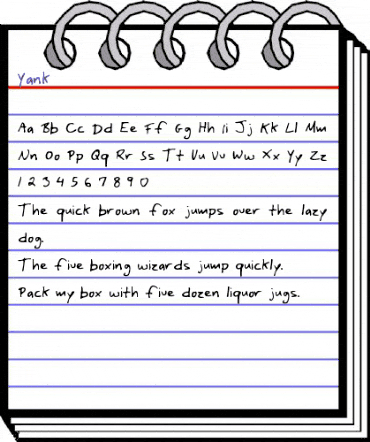 Yank
Aa Bb Cc Dd Ee Ff Gg Hh Ii Jj Kk Ll Mm
Nn Oo Pp Qq Rr Ss Tt Uu Vv Ww Xx Yy Zz
1 2 3 4 5 6 7 8 9 0
The quick brown fox jumps over the lazy
dog.
The five boxing wizards jump quickly.
Pack my box with five dozen liquor jugs.